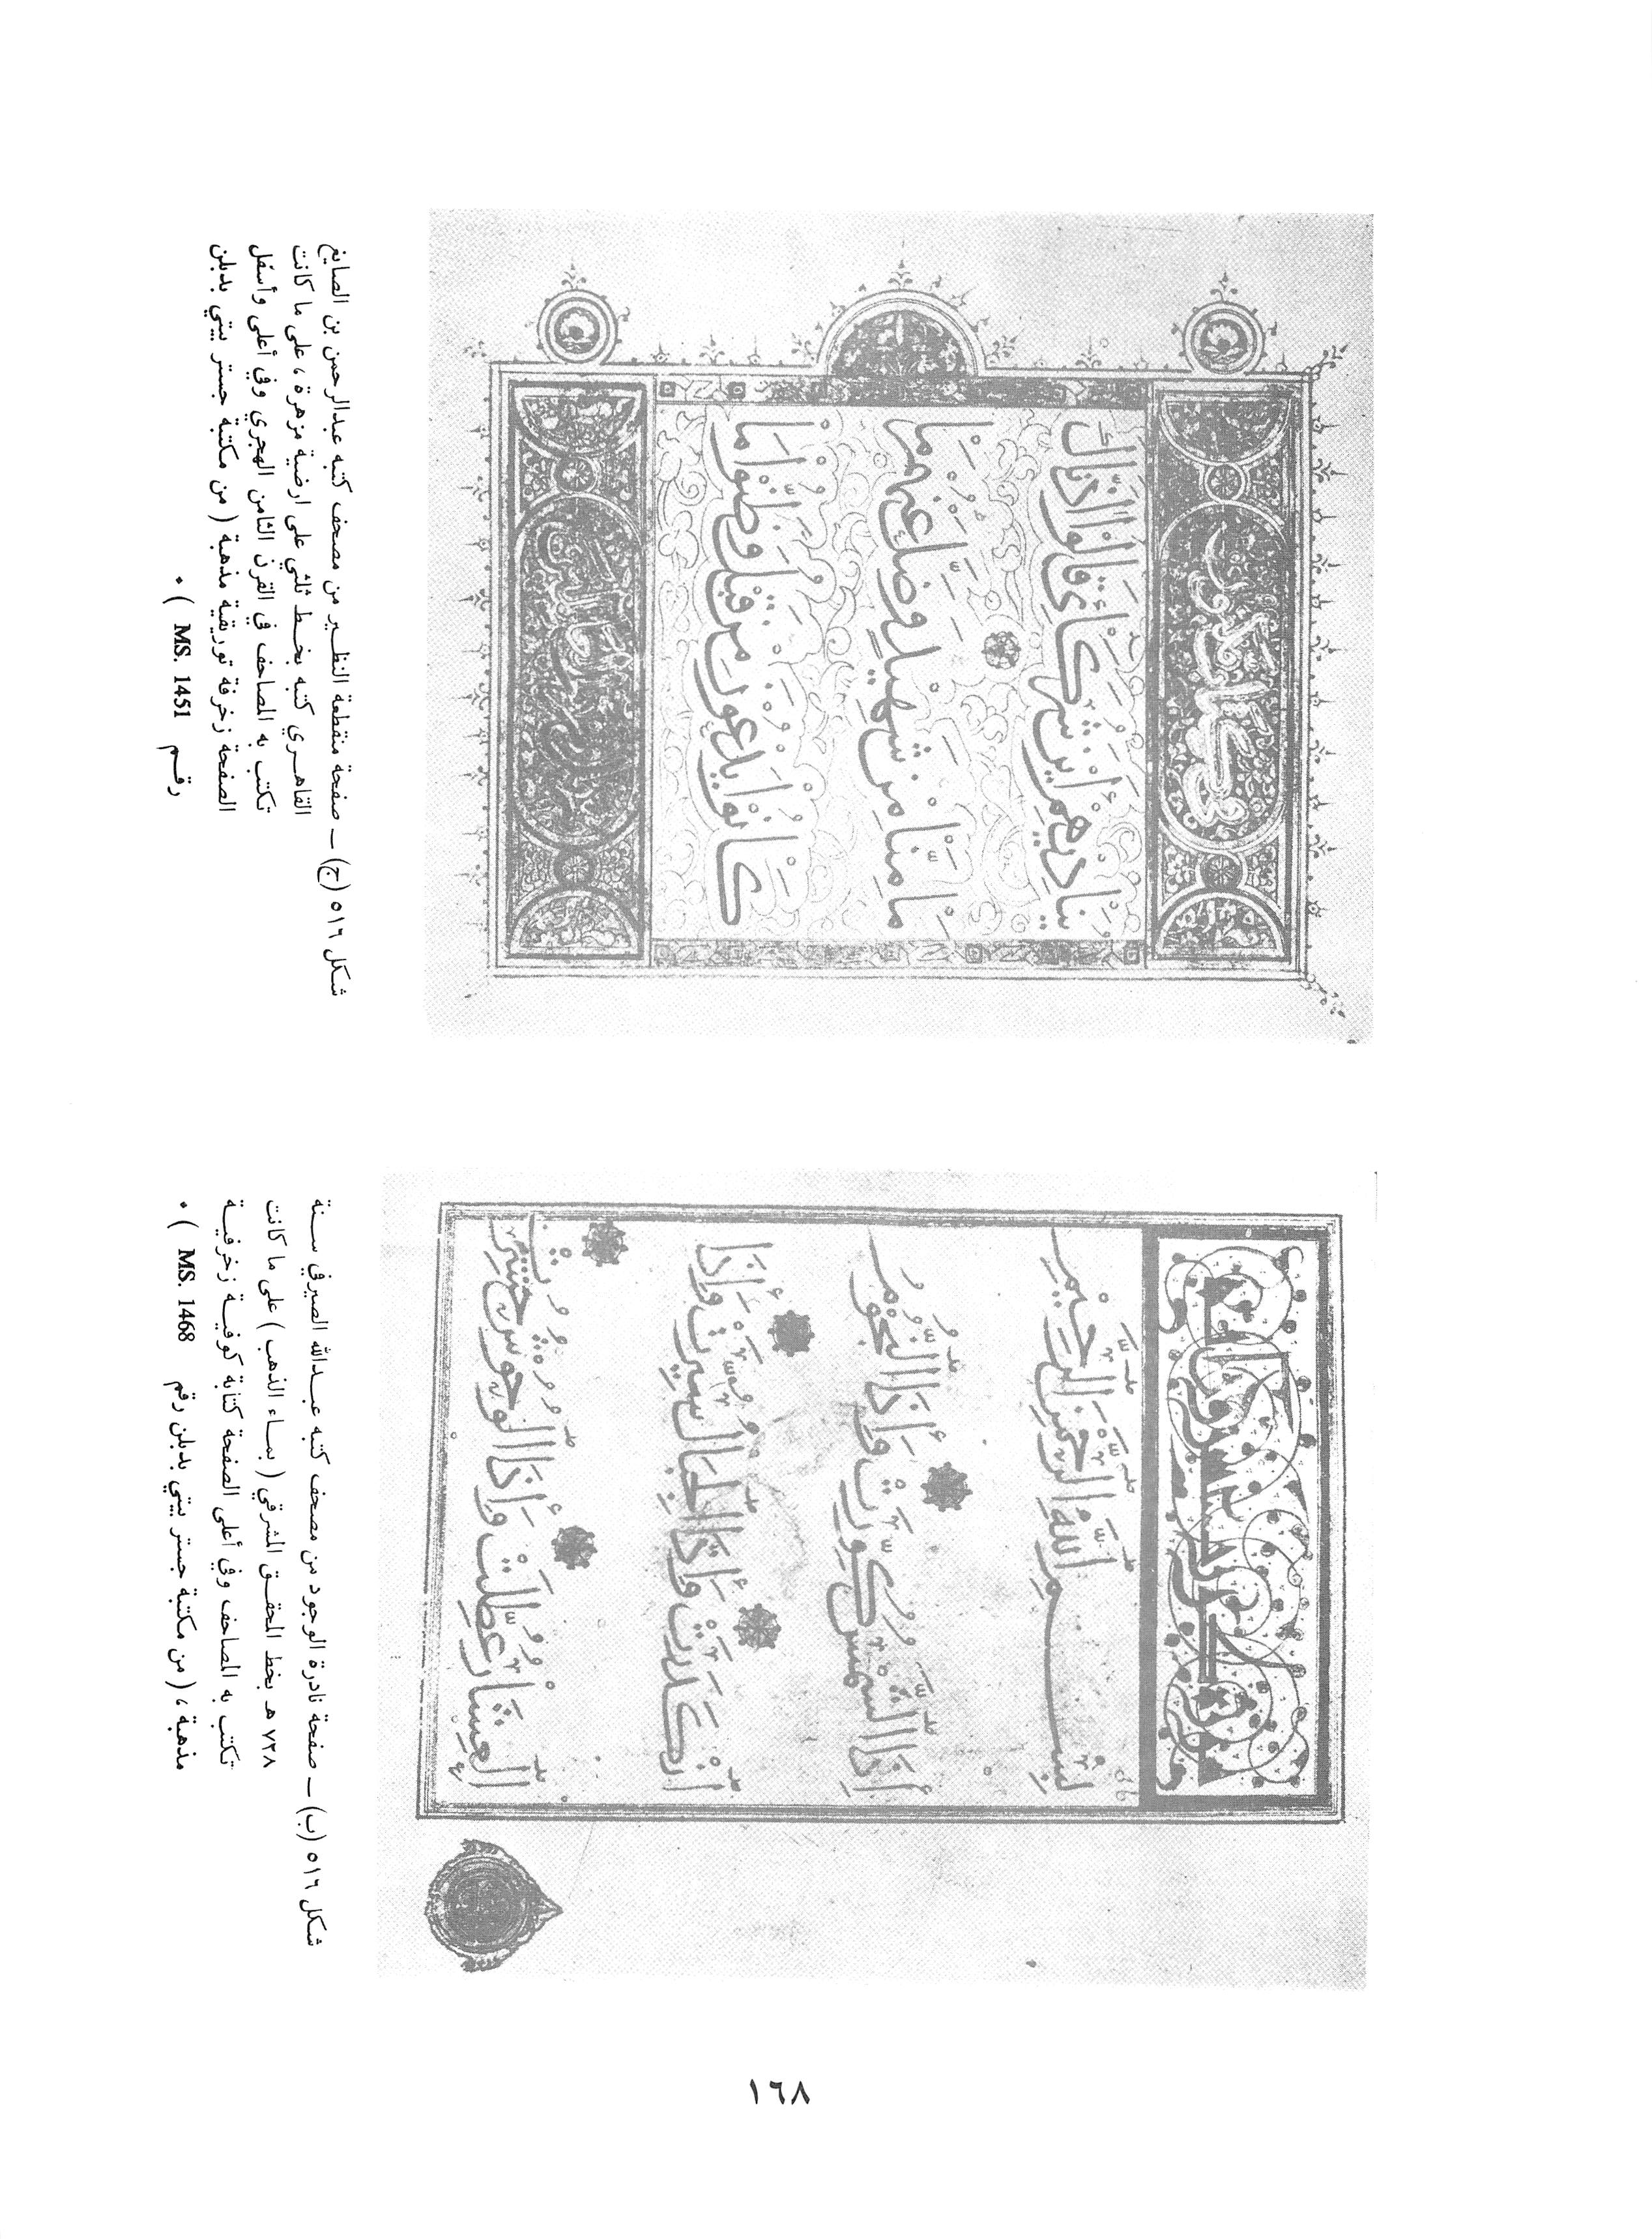 بِسْمِ اللَّهِ الرَّحْمَنِ الرَّحِيمِ
إِذَا الشَّمْسُ كُوِّرَتْ وَإِذَا النُّجُومُ
انْكَدَرَتْ وَإِذَا الْجِبَالُ سُيِّرَتْ وَإِذَا
الْعِشَارُ عُطِّلَتْ وَإِذَا الْوُحُوشُ حُشِرَتْ
شكل ٥١٦ (ب) ــ صفحة نادرة الوجود من مصحف كتبه عبدالله الصيرفي سنة
٧٢٨ هـ بخط المحقق المشرقي ( بماء الذهب ) على ما كانت
تكتب به المصاحف وفي أعلى الصفحة كتابة كوفية زخرفية
مذهبة ، ( من مكتبة جستر بيتي بدبلن رقم MS. 1468 ) ٠
يُنَادِيهِمْ أَيْنَ شُرَكَائِي قَالُوا آذَنَّاكَ
مَا مِنَّا مِنْ شَهِيدٍ وَضَلَّ عَنْهُمْ مَا
كَانُوا يَدْعُونَ مِنْ قَبْلُ وَظَنُّوا مَا
شكل ٥١٦ (ج) ــ صفحة منقطعة النظير من مصحف كتبه عبدالرحمن بن الصايغ
القاهري كتبه بخط ثلثي على ارضية مزهرة ، على ما كانت
تكتب به المصاحف في القرن الثامن الهجري وفي أعلى وأسفل
الصفحة زخرفة توريقية مذهبة ( من مكتبة جستر بيتي بدبلن
رقم MS. 1451 ) ٠
١٦٨